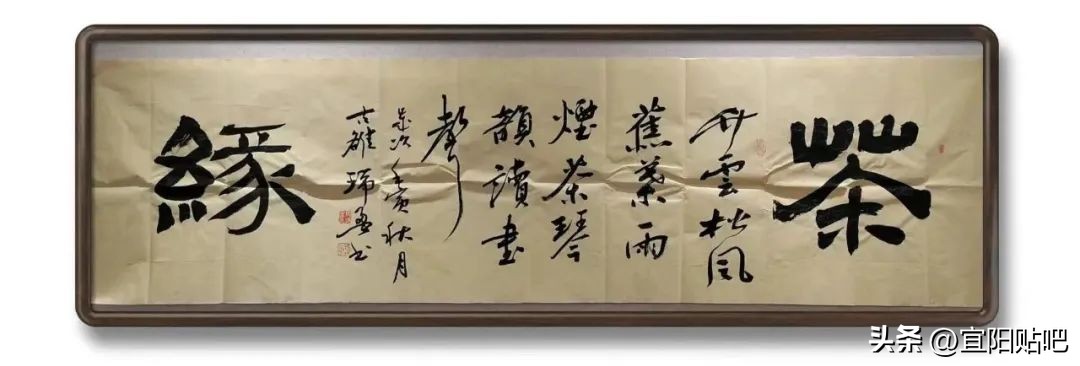 茶
竹雲松風
蕉葉雨
煙茶琴
韻讀書
聲
歲次壬寅秋月
古雒瑞书
緣
头条 @宜阳贴吧